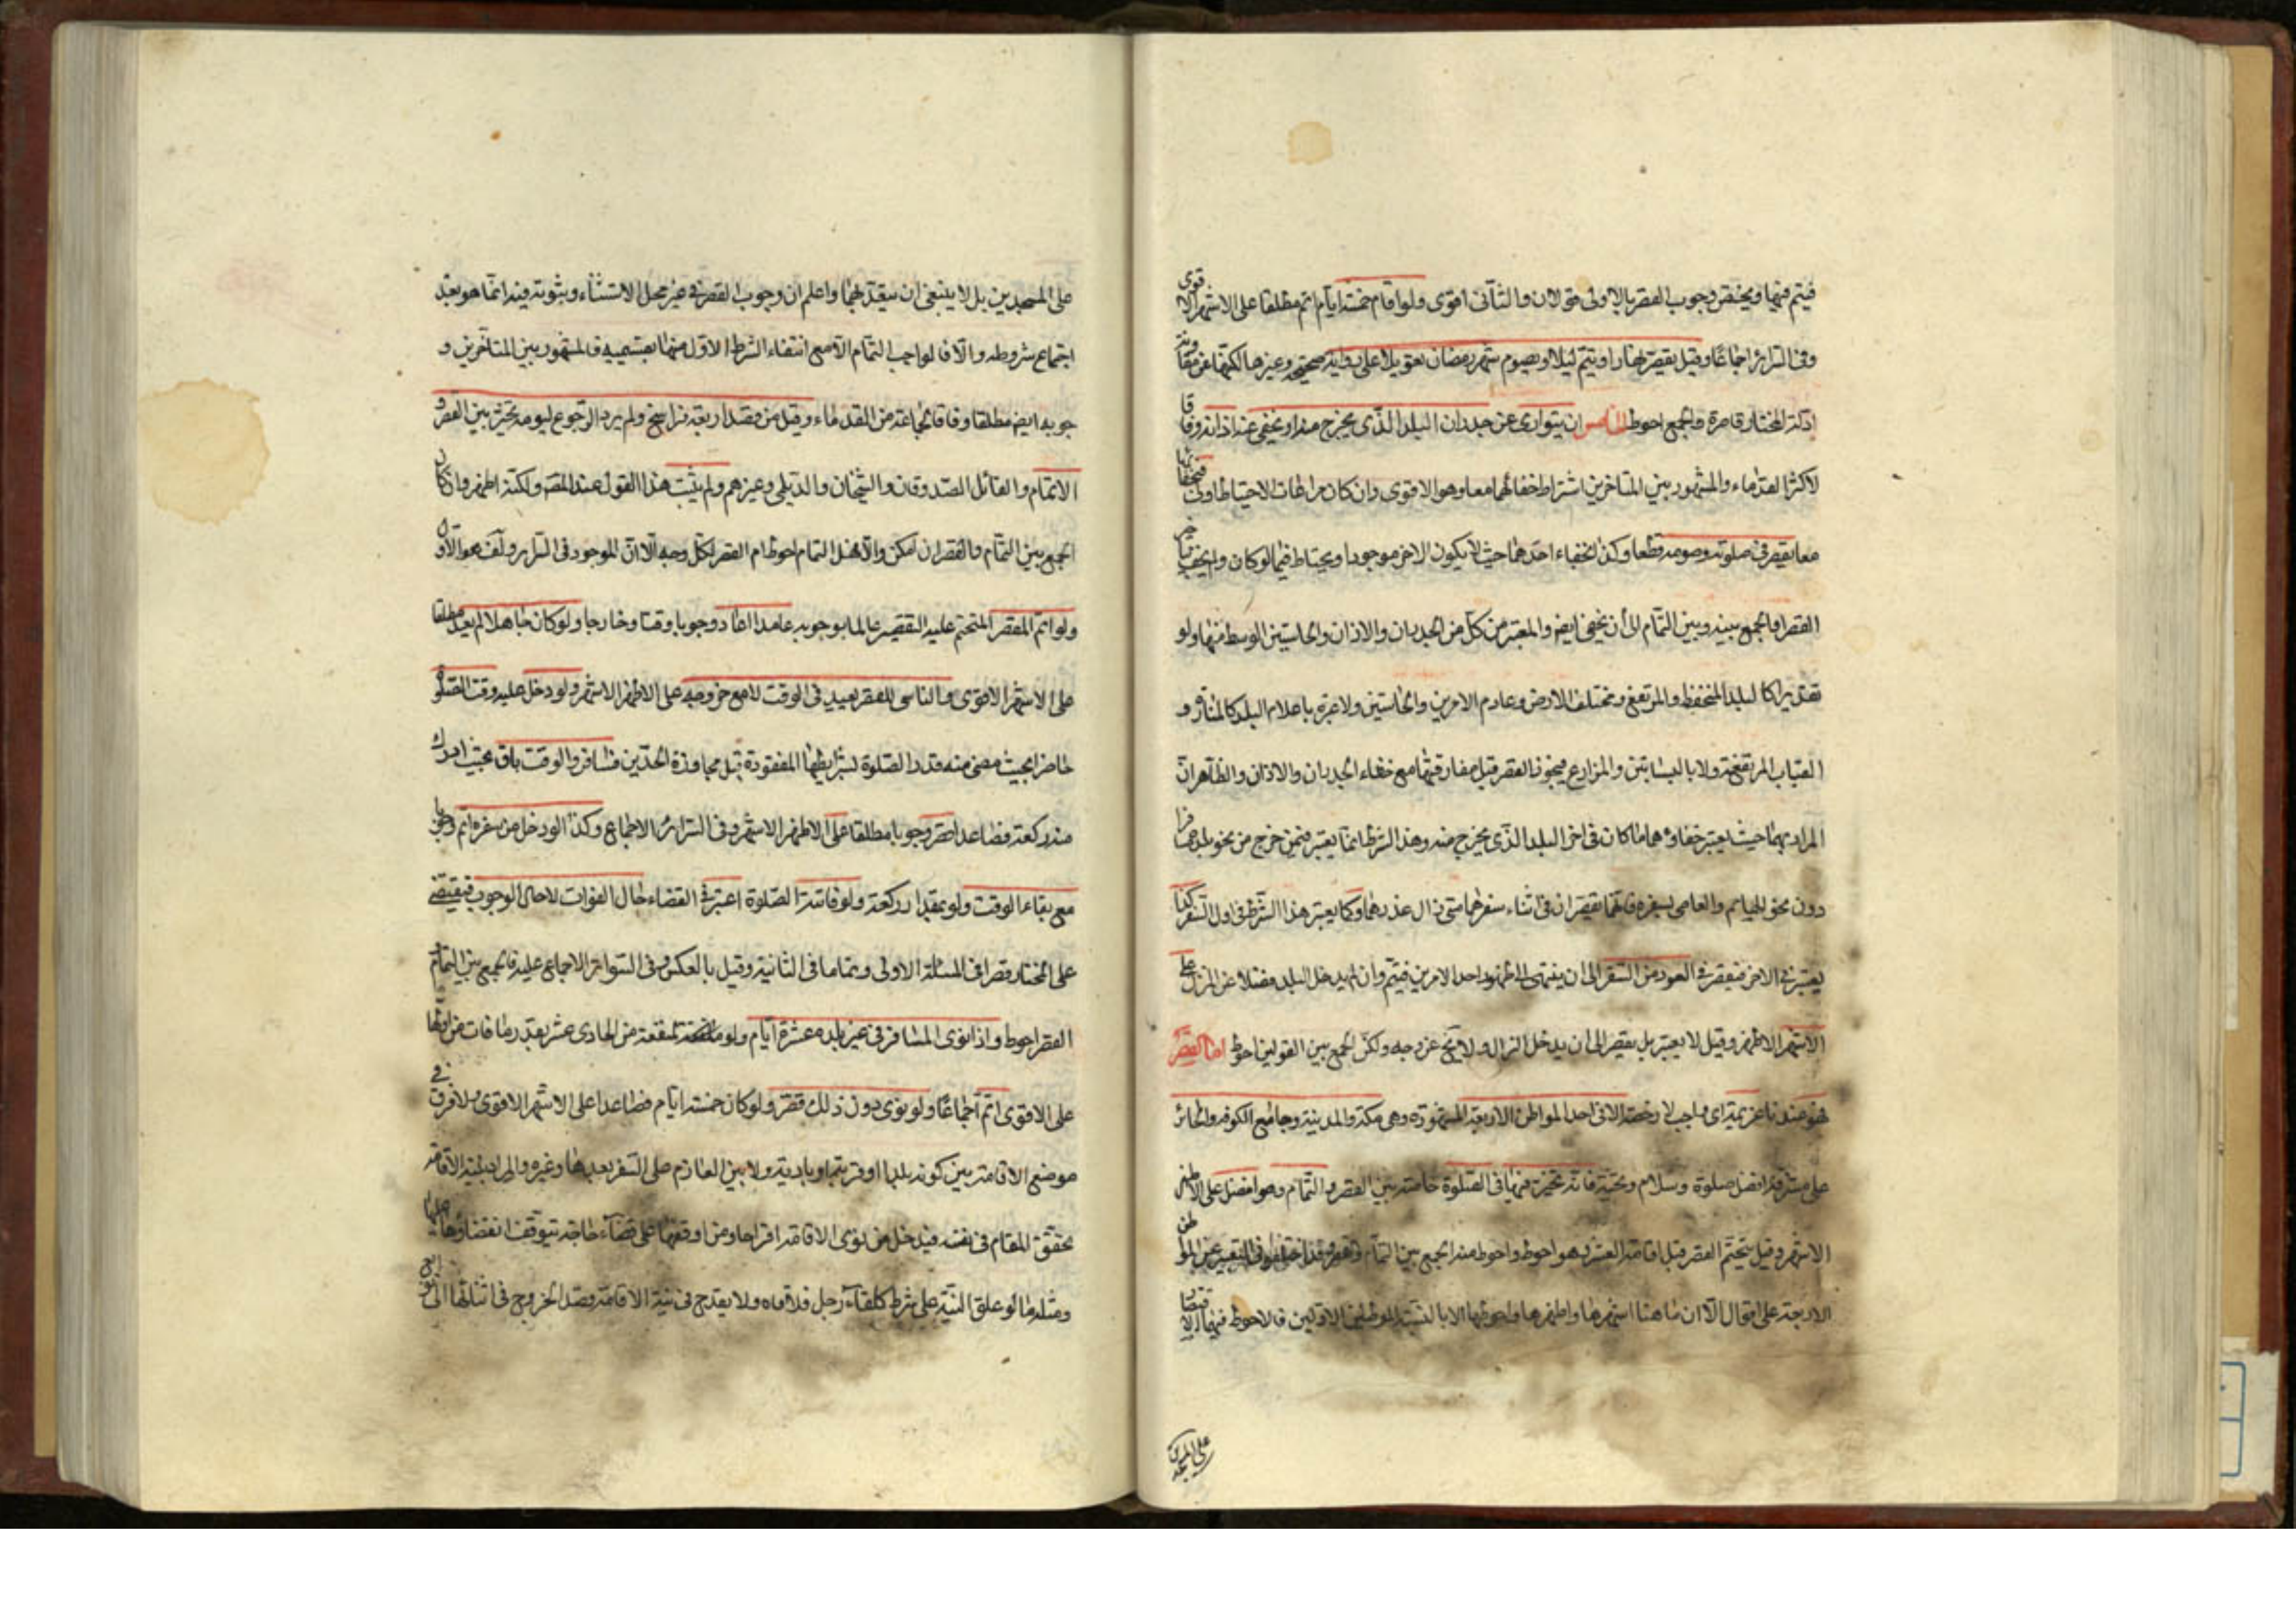 فيتم فيها ويختص وجوب القصر بالاولى قولان والثانى اقوى ولو اقام خمسة ايام اتم مطلقا على الاشهر الاقوى
وفى السرائر اجماعا وقيل يقصر نهارا ويتم ليلا ويصوم شهر رمضان تعويلا على رواية صحيحة وغيرها لكنها عن مقاومة
ادلة المختار قاصرة والجمع احوط الخامس ان يتوارى عن جدران البلد الذى يخرج منه او يخفى عنه اذانه وفاقا
لاكثر القدماء والمشهور بين المتاخرين اشتراط خفائهما معا وهو الاقوى وان كان مراعات الاحتياط اولى فبخفائهما
معا يقصر فى صلوته وصومه قطعا وكذا بخفاء احدهما حيث لا يكون الاخر موجودا ويحتاط فيما لو كان ولم يخف بتاخير
القصر او الجمع بينه وبين التمام الى أن يخفى ايض والمعتبر من كل من الجدران والاذان والحاستين الوسط منها ولو
تقديرا كالبلد المنخفظ والمرتفع ومختلف الارض وعادم الامرين والحاستين ولا عبرة باعلام البلد كالمنائر و
القباب المرتفعة ولا بالبساتين والمزارع فيجوز القصر قبل مفارقتها مع خفاء الجدران والاذان والظاهر ان
المراد بهما حيث يعتبر خفاؤهما ما كان فى اخر البلد الذى يخرج منه وهذا الشرط انما يعتبر فيمن خرج من نحو بلده مسافرا
دون نحو الهايم والعاصى بسفره فانهما يقصران فى اثناء سفرهما متى زال عذرهما وكما يعتبر هذا الشرط فى اول السفر كذا
يعتبر فى الاخر فيقصر فى العود من السفر الى ان ينتهى الى ظهور احد الامرين فيتم وان لم يدخل البلد فضلا عن المنزل على
الاشهر الاظهر وقيل لا يعتبر بل يقصر الى ان يدخل المنزل ولا يخ عن وجه ولكن الجمع بين القولين احوط اما القصر
فهو عندنا عزيمة اى واجب لا رخصة الا فى احد المواطن الاربعة المشهورة وهى مكة والمدينة وجامع الكوفة والحائر
على مشرفه افضل صلوة وسلام وتحية فانه يتخير فيها فى الصلوة خاصة بين القصر والتمام وهو افضل على الاظهر
الاشهر وقيل يتحتم القصر قبل اقامة العشر فهو احوط واحوط منه الجمع بين التمام والقصر وقد اختلفوا فى التعبير عن المواطن
الاربعة على اقوال الا ان ما هنا اشهرها واظهرها واحوطها الا بالنسبة الى الموطنين الاولين فالاحوط فيهما الاقتصار
على المسجدين
على المسجدين بل لا ينبغى ان يتعدّيهما واعلم ان وجوب القصر فى غير محل الاستثناء وثبوته فيه انما هو بعد
اجتماع شروطه والا فالواجب التمام الا مع انتفاء الشرط الاول منها بقسميه فالمشهور بين المتاخرين و
جوبه ايض مطلقا وفاقا لجماعة من القدماء وقيل من قصد اربعة فراسخ ولم يرد الرجوع ليومه تخير بين القصر و
الاتمام والقائل الصدوقان والشيخان والديلمى وغيرهم ولم يثبت هذا القول عند المص ولكنه اظهر وان كان
الجمع بين التمام والقصر ان امكن والا فهل التمام احوط ام القصر لكل وجه الا ان الموجود فى السرائر ولف هو الاول
ولو اتم المقصر المتحتم عليه التقصير عالما بوجوبه عامدا اعاد وجوبا وقتا وخارجا ولو كان جاهلا لم يعد مطلقا
على الاشهر الاقوى والناسى للقصر يعيد فى الوقت لا مع خروجه على الاظهر الاشهر ولو دخل عليه وقت الصلوة
حاضرا بحيث مضى منه قدر الصلوة بشرايطها المفقودة قبل مجاوزة الحدين فسافر والوقت باق بحيث ادرك
منه ركعة فصاعدا قصر وجوبا مطلقا على الاظهر الاشهر وفى السرائر الاجماع وكذا لو دخل من سفره اتم وجوبا
مع بقاء الوقت ولو بمقدار ركعة ولو فاتته الصلوة اعتبر فى القضاء حال الفوات لا حال الوجوب فيقضى
على المختار قصرا فى المسئلة الاولى وتماما فى الثانية وقيل بالعكس وفى السرائر الاجماع عليه فالجمع بين التمام و
القصر احوط واذا نوى المسافر فى غير بلده عشرة ايام ولو ملفقة من الحادى عشر بقدر ما فات من اولها
على الاقوى اتم اجماعا ولو نوى دون ذلك قصر ولو كان خمسة ايام فصاعدا على الاشهر الاقوى ولا فرق فى
موضع الاقامة بين كونه بلدا او قرية او بادية ولا بين العازم على السفر بعدها وغيره والمراد بنية الاقامة
تحقق المقام فى نفسه فيدخل من نوى الاقامة اقتراحا ومن اوقفها على قضاء حاجة يتوقف انقضاؤها عليها
ومثله ما لو علق النية على شرط كلقاء رجل فلاقاه ولا يقدح فى نية الاقامة قصد الخروج فى اثنائها الى